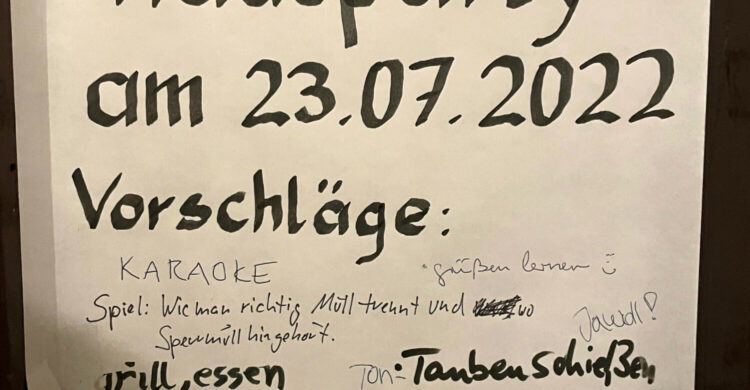 Hausparty
am 23.07.2022
Vorschläge:
KARAOKE
grüßen lernen :)
Spiel: Wie man richtig Müll trennt und wo
Sperrmüll hingehört.
Jawoll!
grill, essen
Ton: Taubenschießen